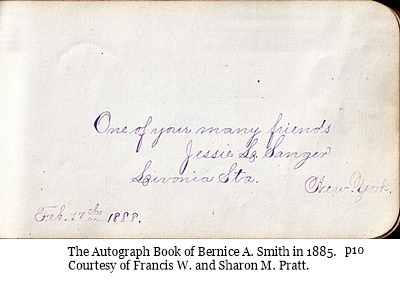 One of your many friends
Jessie L. Sanger
Livonia Sta.
New York.
Feb. 17th 1888.
The Autograph Book of Bernice A. Smith in 1885. p10
Courtesy of Francis W. and Sharon M. Pratt.